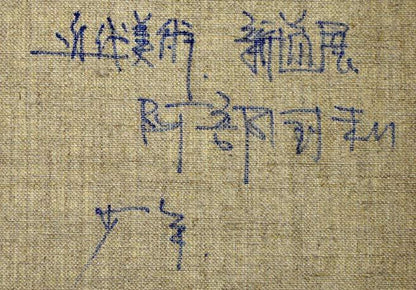 近代美術 新道展
阿部
少年